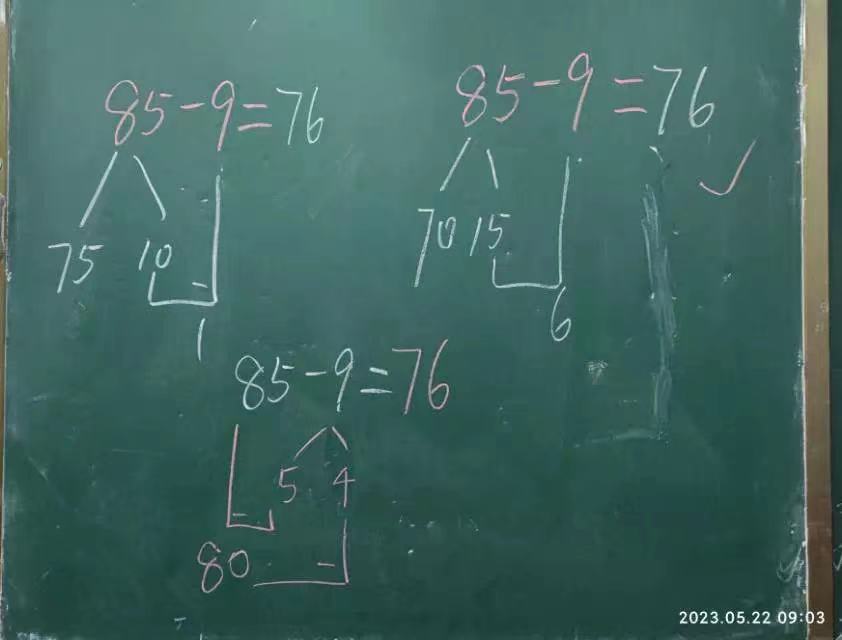 85-9=76
75 10
1
85-9=76
70 15
6
85-9=76
5 4
80
2023.05.22 09:03